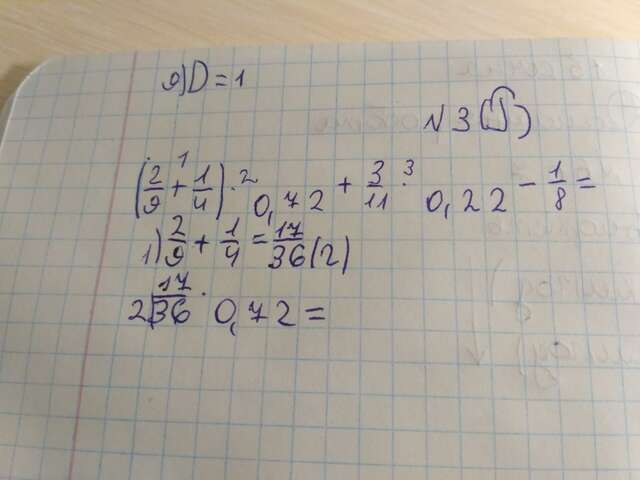 д) D = 1
N 3 (д)
(2/9 + 1/4) · 0,72 + 3/11 · 0,22 - 1/8 =
1) 2/9 + 1/4 = 17/36 (2)
2) 17/36 · 0,72 =